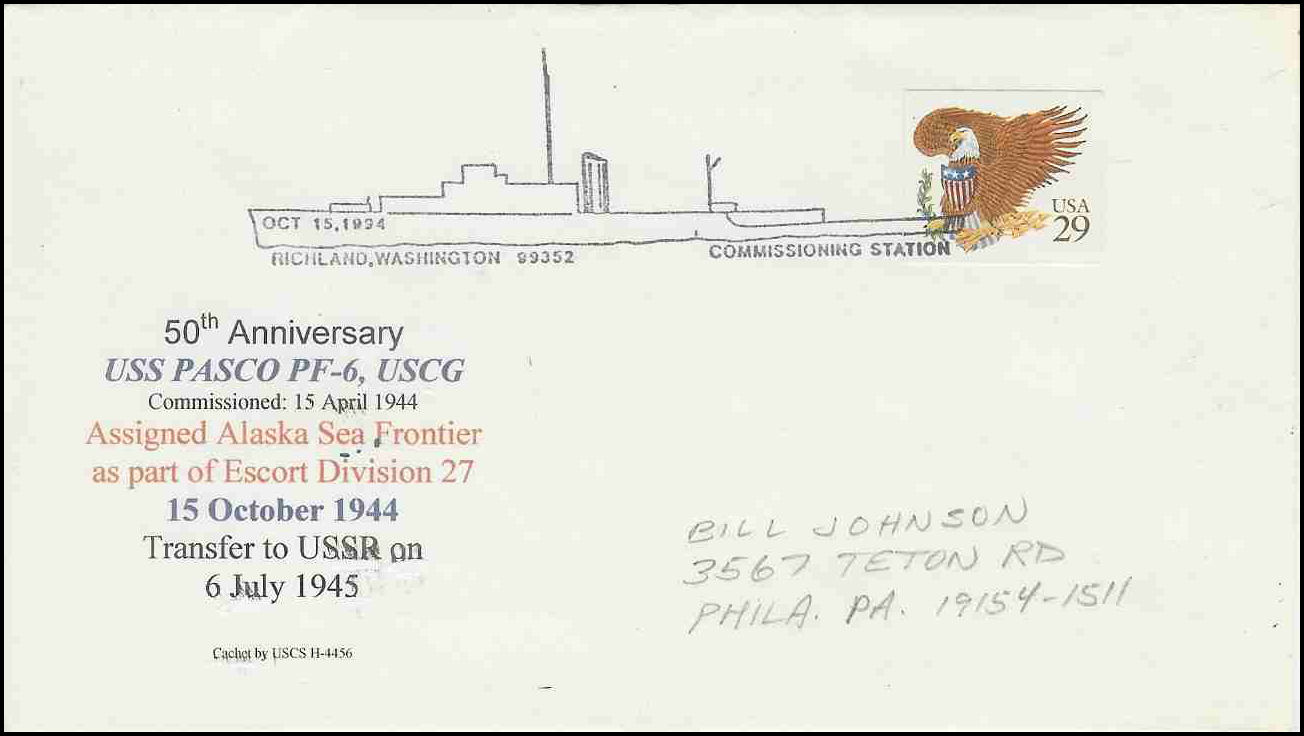 OCT 15, 1994
RICHLAND, WASHINGTON 99352
COMMISSIONING STATION
USA
29
50th Anniversary
USS PASCO PF-6, USCG
Commissioned: 15 April 1944
Assigned Alaska Sea Frontier
as part of Escort Division 27
15 October 1944
Transfer to USSR on
6 July 1945
Cachet by USCS H-4456
BILL JOHNSON
3567 TETON RD
PHILA. PA. 19154-1511